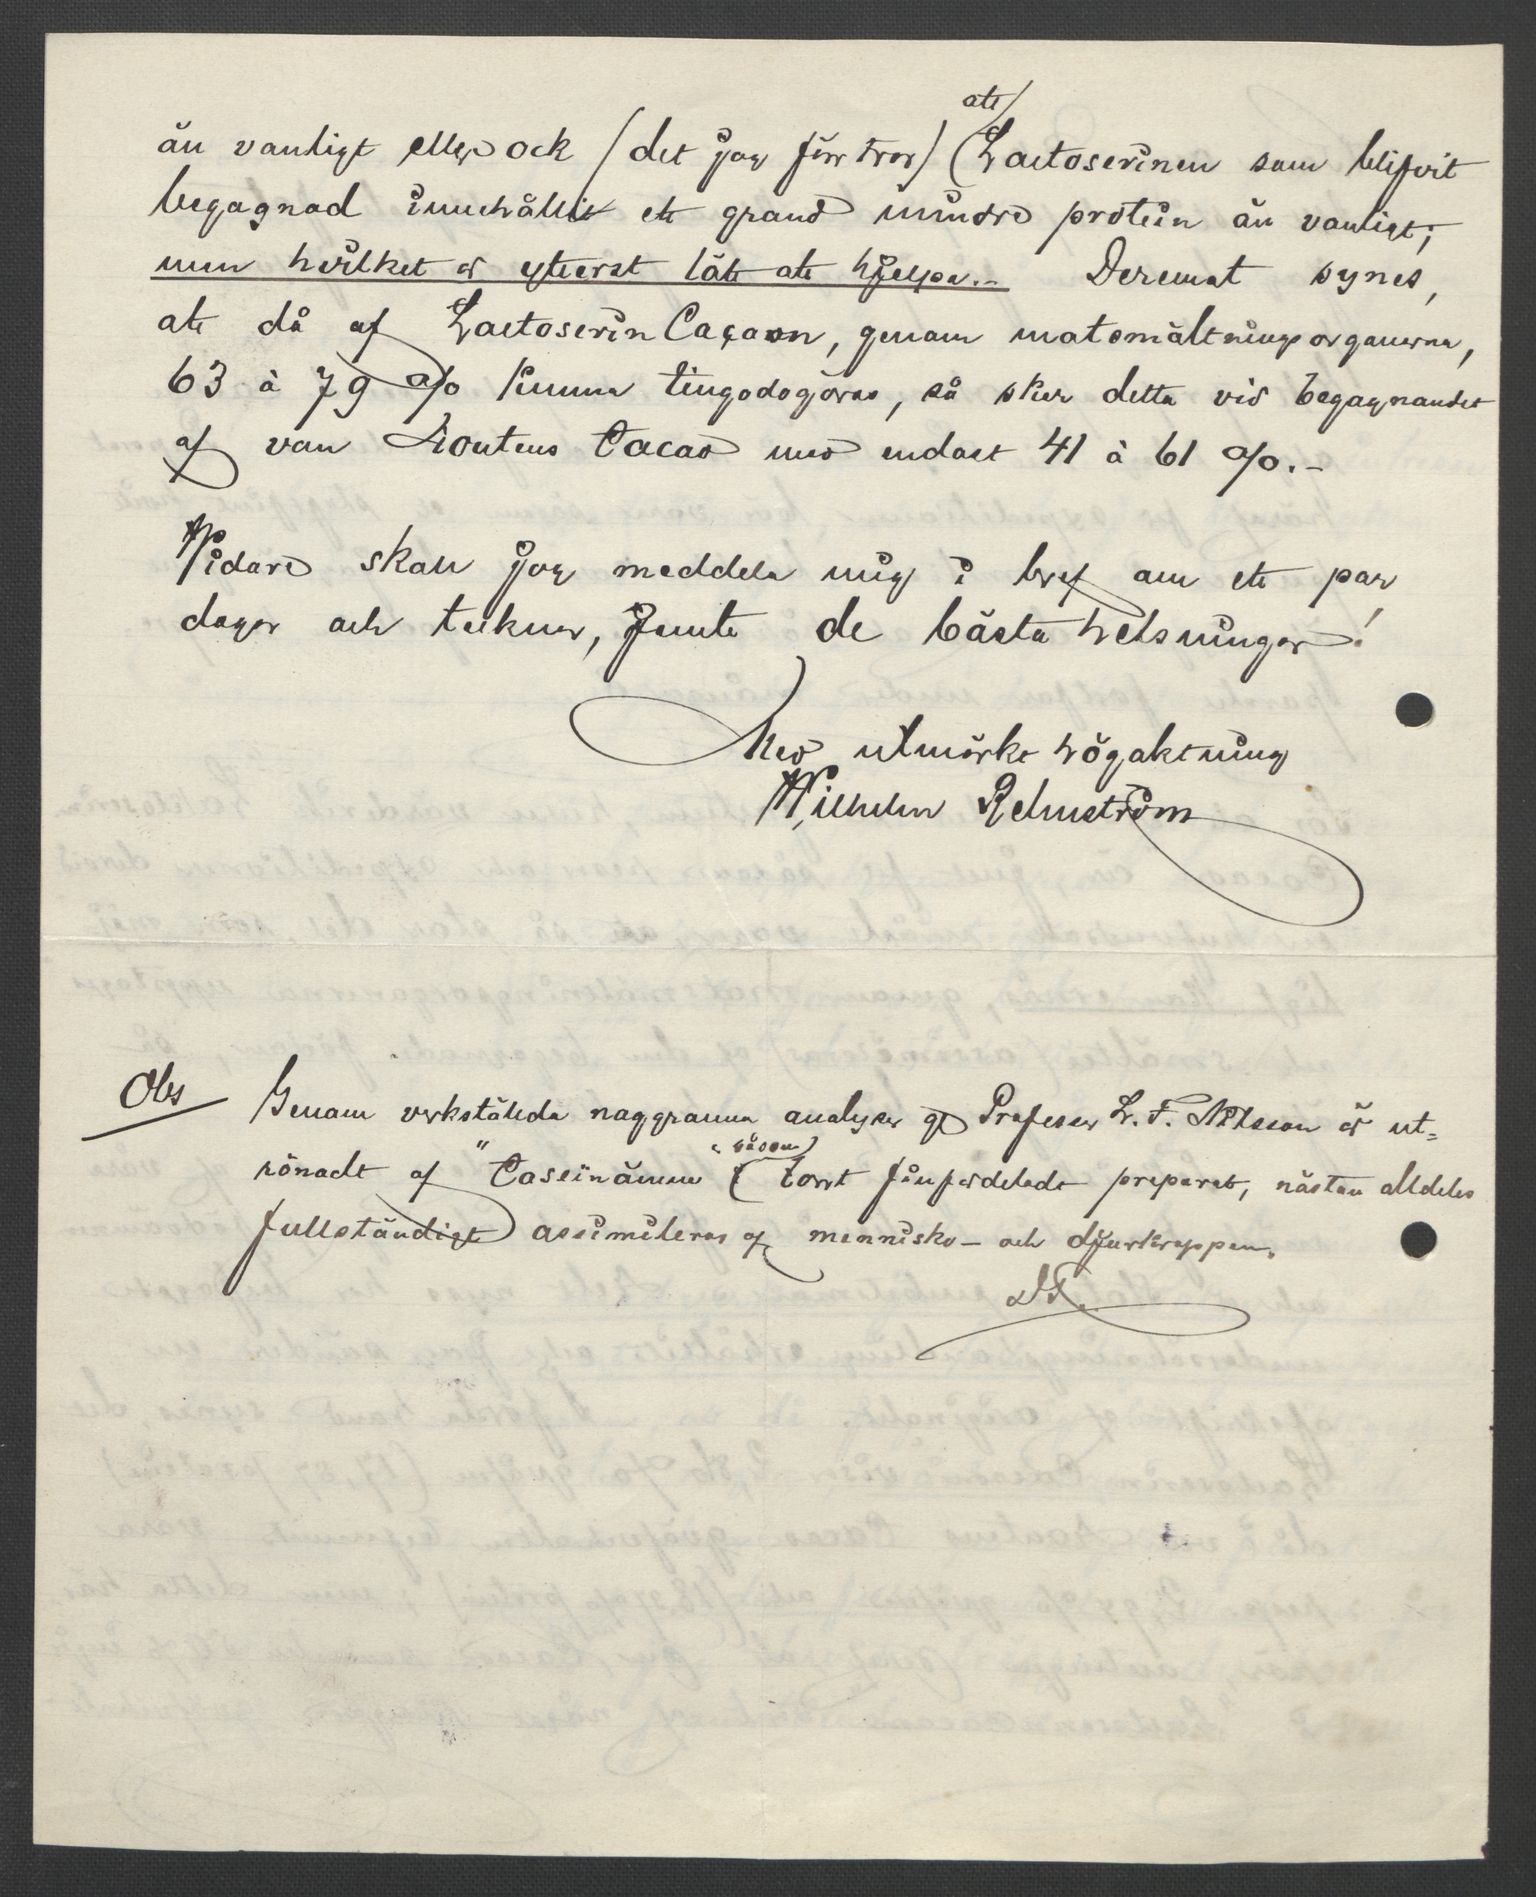 än vanligt eller ock (det jag förr tror) att Lactoserinen som blifvit
begagnad innehållit ett grand mindre protein än vanligt;
men hvilket är ytterst lätt att hjelpa.- Deremot synes,
att då af Lactoserin Cacaon, genom matsmältningsorganerna,
63 à 79 % kunna tillgodogöras, så sker detta vid begagnandet
af van Houtens Cacao med endast 41 à 61 %.-
Vidare skall jag meddela mig i bref om ett par
dagar och tecknar, jemte de bästa helsningar!
Med utmärkt högaktning
Wilhelm Rehnström
Obs Genom verkstälda noggranna analyser af Professor L. F. Nilson är ut-
rönadt af "Caseinämne" (" sådan ") i torrt finfördeladt preparat, nästan alldeles
fullständigt assimileras af mennisko- och djurkroppen.